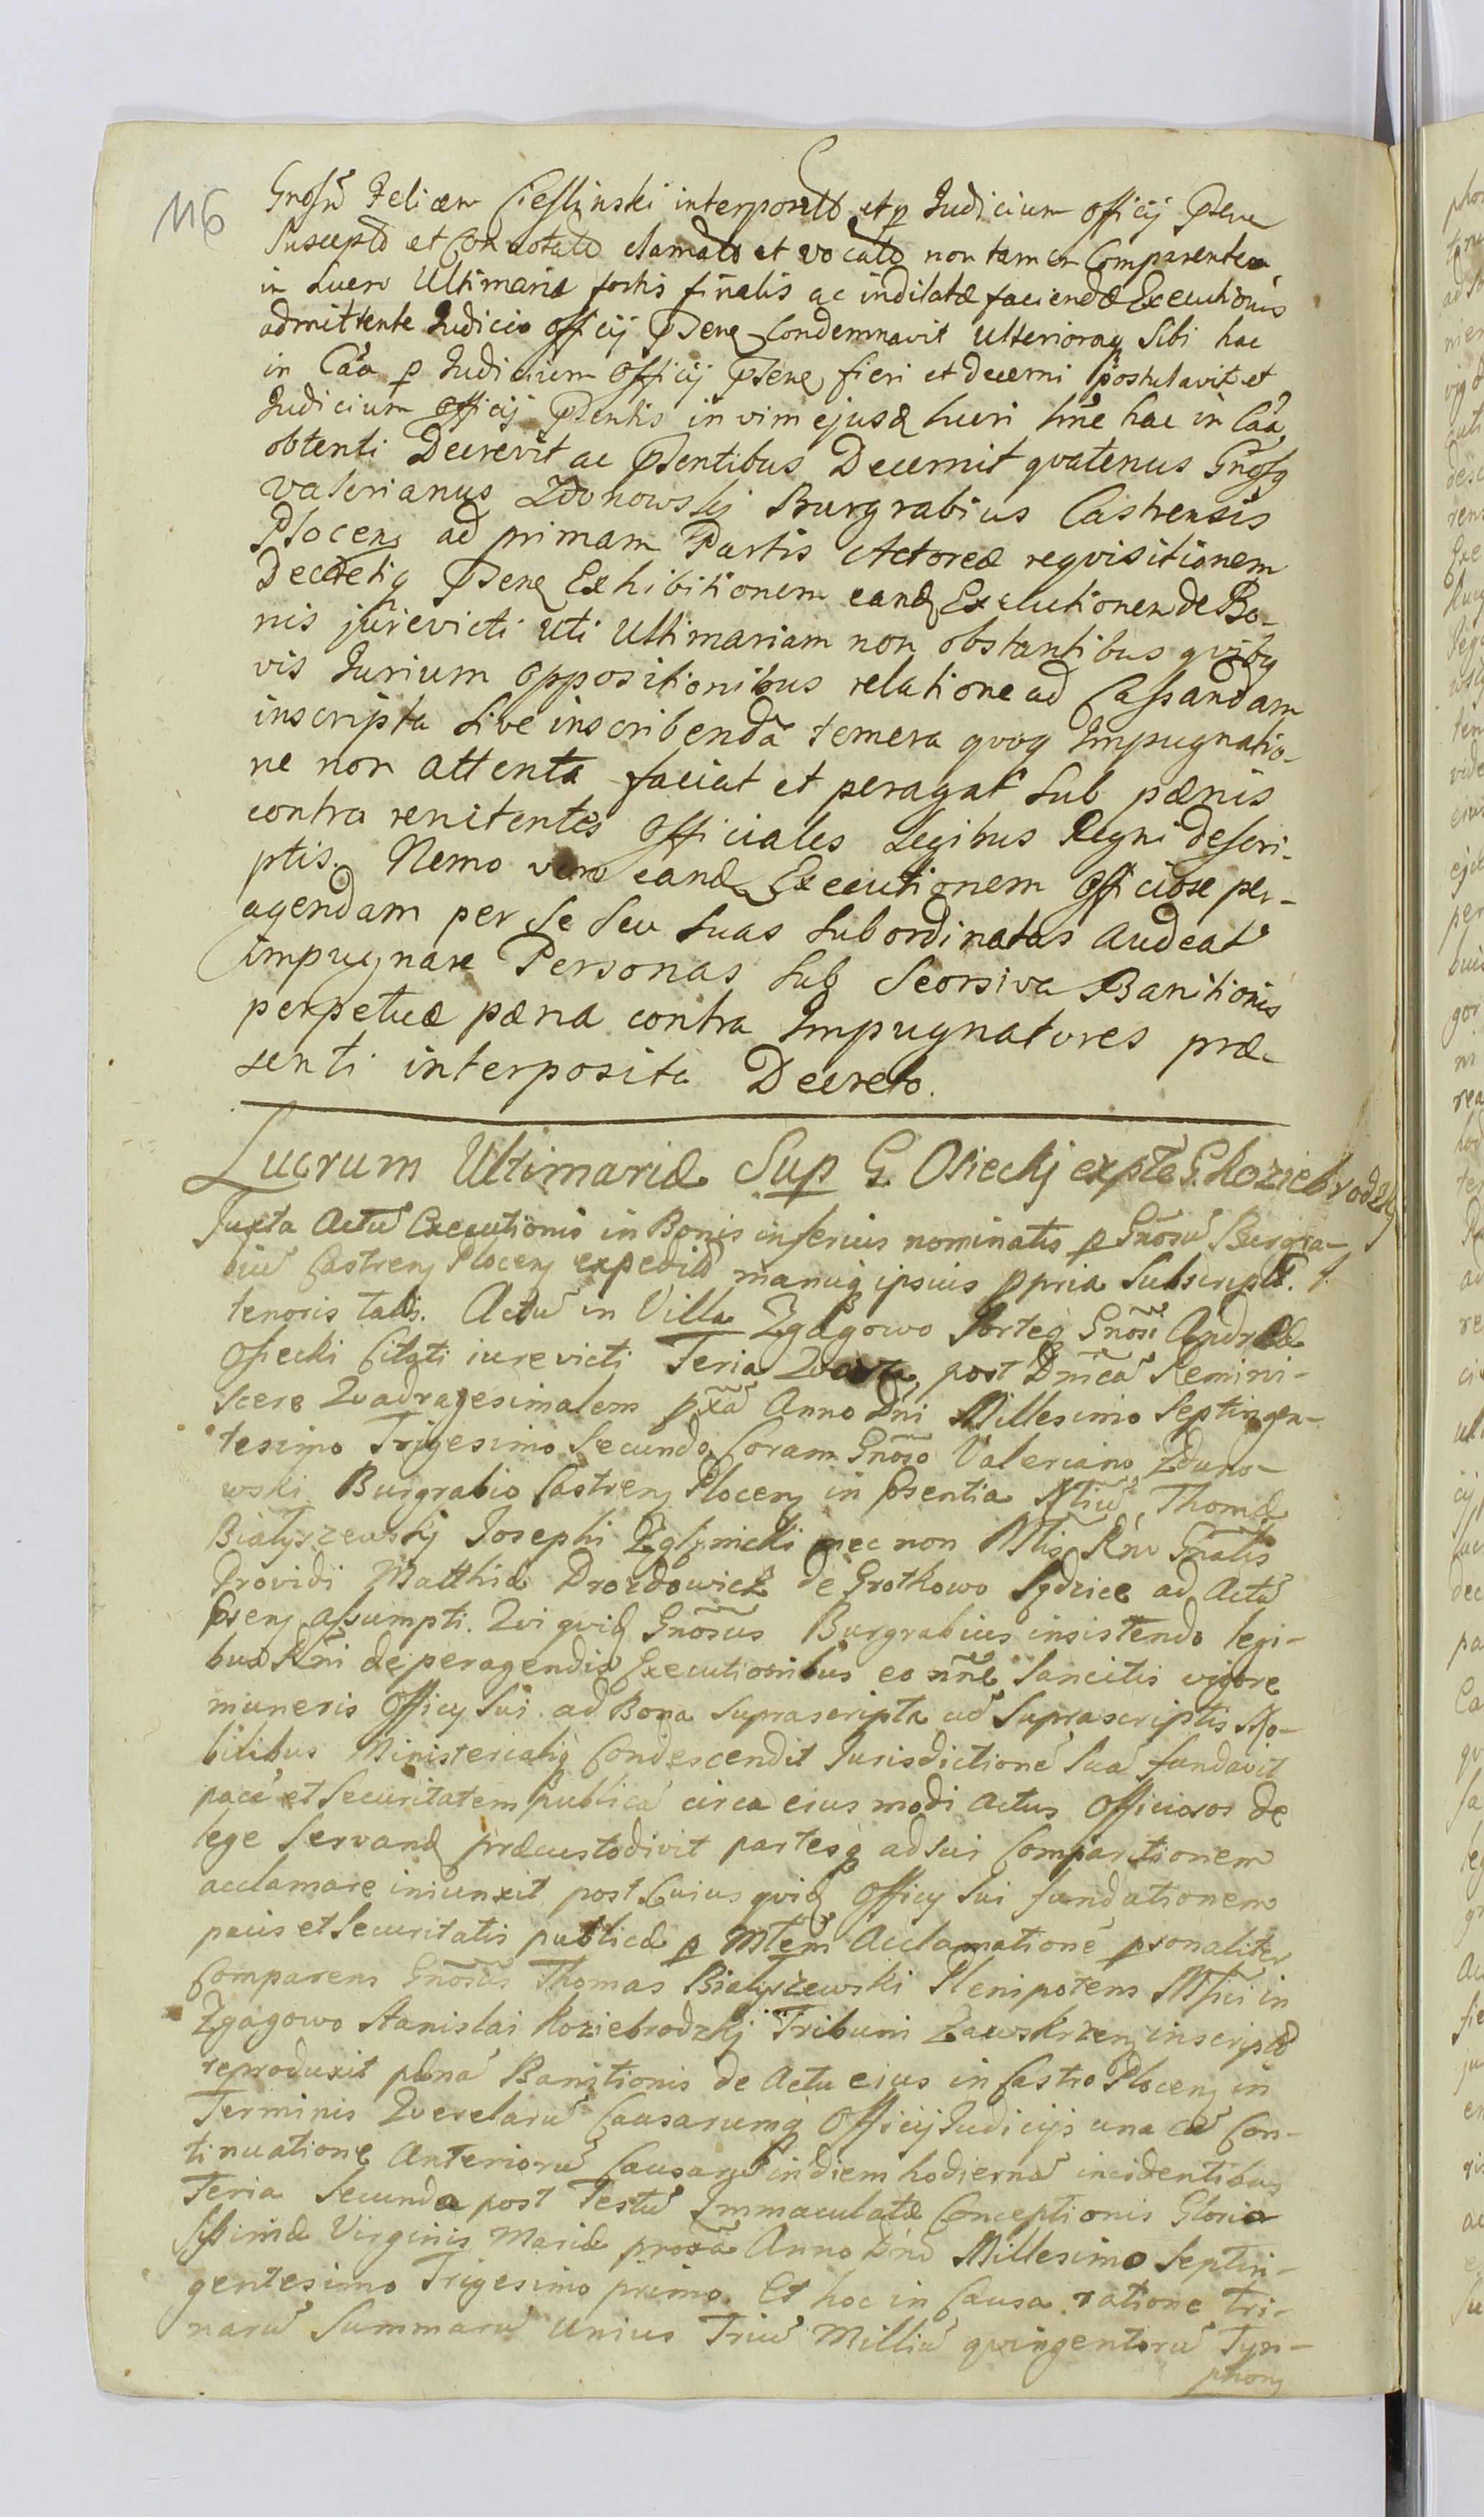 116
Gnosū Felicem Cieslinski interpositū et p Judicium officij pſens
Susceptū et Connotatū clamatū et vocatū non tamen Comparentem
in Lucro Ultimariæ fortis finalis ac indilatæ faciendæ Executionis
admittente Judicio officij pſenq Condemnavit Ulterioraq Sibi hac
in Cãa p Judicium Officij pſens fieri et decerni postulavit et
Judicium officij pſentis in vim ejusd Lucri hñe hac in Cãa
obtenti Decrevit ac pſentibus Decernit qvatenus Gnosq
Valerianus Zdonowskj Burgrabius Castrensis
Plocenq ad primam Partis Actoreæ reqvisitionem
Decretiq pſenq Exhibitionem eandq Executionem de Bo-
nis jurevicti uti Ultimariam non obstantibus qvibq
vis Jurium oppositionibus relatione ad Caſsandam
inscripta Sive inscribendâ temera qvoq Impugnatio-
ne non attenta faciat et peragat Sub pænis
contra renitentes Officiales Legibus Regni deſcri-
ptis. Nemo vero eandq Executionem Officiose per-
agendam per Se Seu Suas Subordinatas audeat
impugnare Personas Sub Seorsiva Banitionis
perpetuæ pæna contra Impugnatores præ-
senti interposita Decreto.
Lucrum Ultimariæ Sup G. Osieckj ex pte G. Koziebrodzkj
Juxta Actū Executionis in Bonis inferius nominatis p Gnosū Burgra-
biū Castrenq Plocenq expeditū manuq ipsius ppria Subscriptū.
tenoris talis. Actū in Villa Zgagowo Sorteq Gnosi Andreæ
Osiecki Citati iurevicti Feria Quarta post Dnicā Remini-
scere Quadragesimalem pxā Anno Dni Millesimo Septingen-
tesimo Trigesimo Secundo Coram Gnoso Valeriano Zduno-
wski Burgrabio Castrenq Plocenq in pſentia Nliū Thomæ
Białyszewskj Josephi Zglinicki nec non Mtlis Rni Gnalis
Providi Matthiæ Drozdowicz de Grotkowo Sydzice ad Actū
pſenq aſsumpti. Qvi qvidq Gnosus Burgrabius insistendo legi-
bus Rñi de peragendis Executionibus eo nñe Sancitis vigore
muneris Officij Sui ad Bona Suprascripta cū Suprascriptis No-
bilibus Ministerialiq Condescendit Jurisdictionē Suā fundavit
pacē et Securitatem publicā circa eius modi actus Officiosos de
lege Servandq præcustodivit partesq ad sui Comparitionem
acclamare iniunxit post Cuius qvidq Officij Sui fundationem
pacis et Securitatis publicæ p Mtlem Acclamationē psonaliter
Comparens Gnosus Thomas Białyszewski Plenipotens Mfici in
Zgagowo Stanislai Koziebrodzkj Tribuni Zawskrzenq inscriptū
reproduxit pænā Banitionis de Actu eius in Castro Plocenq in
Terminis Qverelarū Causarumq Officij Judicijs una cū Con-
tinuatione Anteriorū Causarū in diem hodiernā incidentibus
Feria Secunda post Festū Immaculatæ Conceptionis Glorio-
sſsimæ Virginis Mariæ proxā Anno Dni Millesimo Septin-
gentesimo Trigesimo primo. Et hoc in Causa ratione Tri-
narū Summarū Unius Triū Milliū qvingentorū Tyn-
phonq